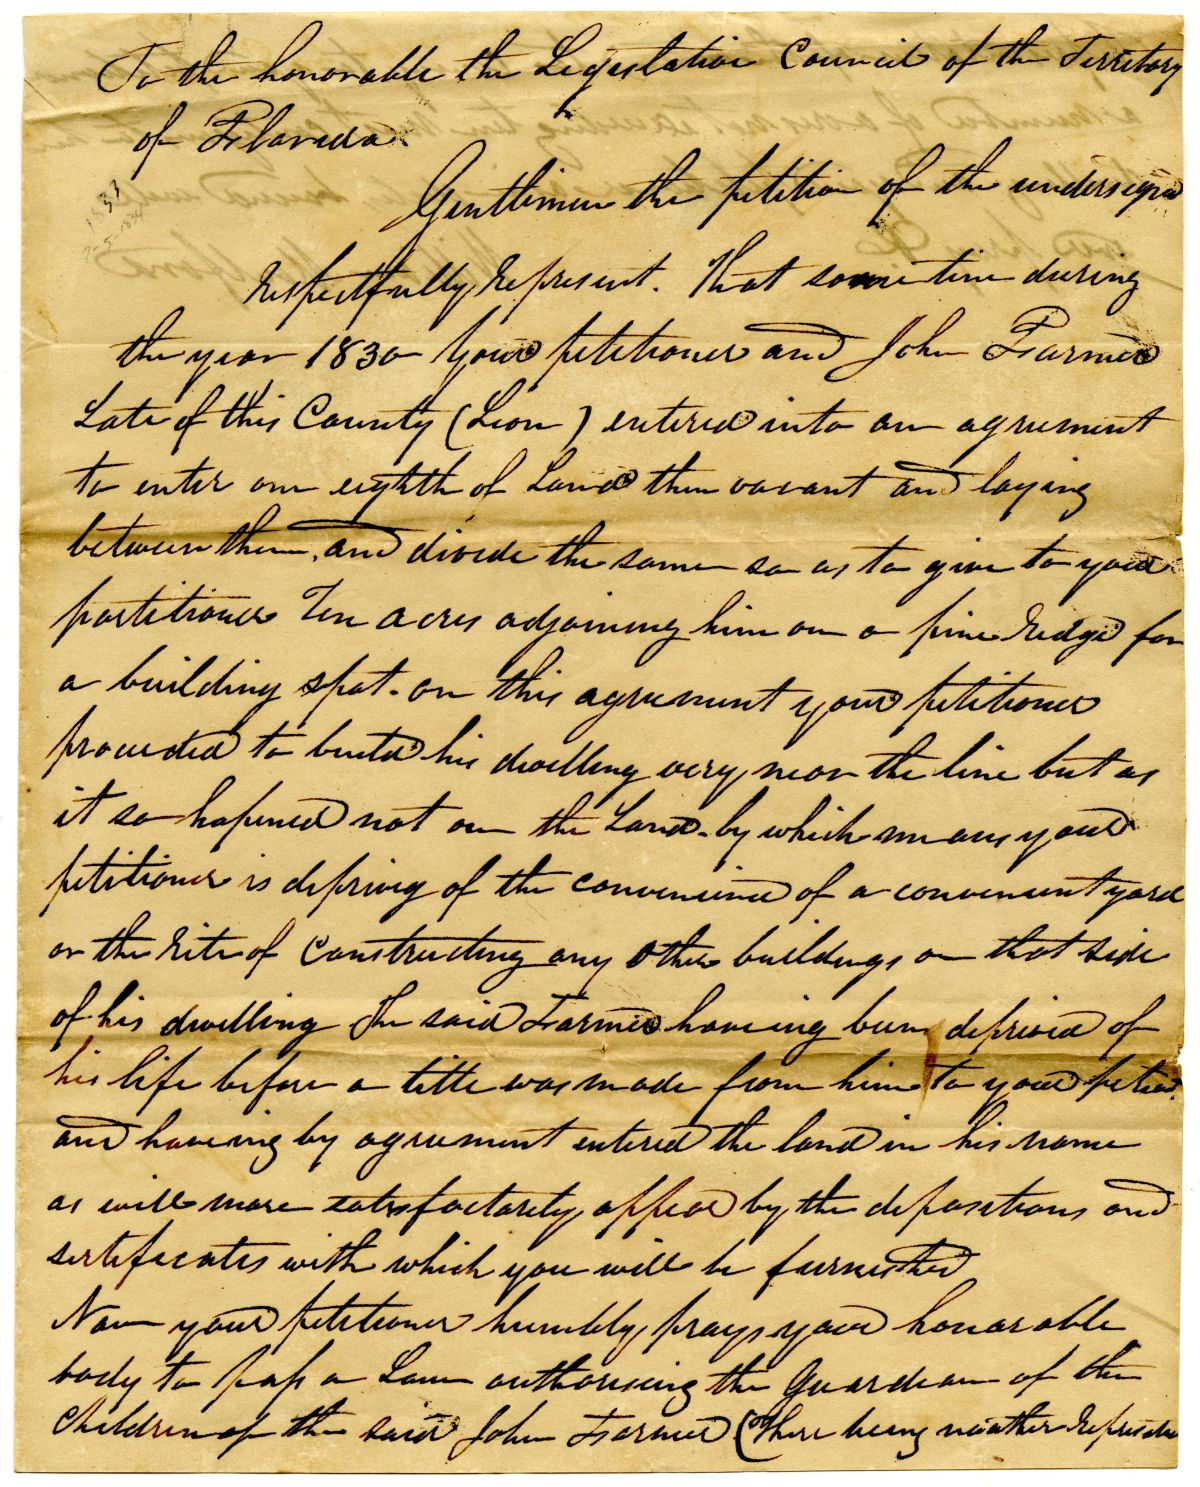 To the honorable the Legeslative Council of the Territory
of Florida
1833
2-5-1834
Gentlimen the petition of the undersigned
Respectfully Represent. That some time during
the year 1830 Your petitioner and John Farmer
Late of this County (Leon) entered into an agreement
to enter one eighth of Land then vacant and laying
between them, and divide the same so as to give to your
partitioner Ten acres adjoining him on a pine Ridge for
a building spot. on this agreement your petitioner
proceeded to build his dwelling very near the line but as
it so hapened not on the Land. by which means your
petitioner is depriveg of the convenience of a convenient yard
or the Rite of Constructing any other buildings on that side
of his dwelling The said Farmer haveing been deprived of
his life before a title was made from him to your petio.
and haveing by agreement entered the land in his name
as will more satisfactorily appear by the depositions and
sertificates with which you will be furnished
Now your petitioner humbly prays your honorable
body to pass a Law authorising the Guardian of the
Children of the said John Farmer (There being neather